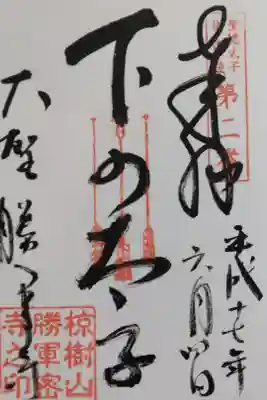 聖徳太子
第二番
奉拝
平成十七年
六月四日
下の太子
大聖勝軍寺
椋樹山
勝軍密
寺之印